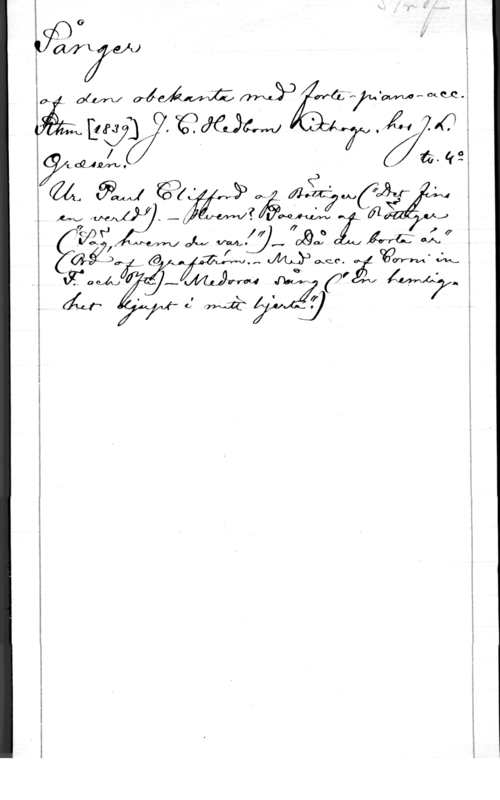 Sånger
af den obekanta med forte-piano-acc.
Sthm [1839] J. C. Hedbom Lithogr. hos J. A.
Græsén. tv. 4º
Ur Paul Clifford af Böttiger ("Det fins
en verld"). - Hvem? Poesien af Böttiger
("Säg, hvem du var!") - "Då du borta är"
(Ord af Grafström. - Med acc. af Corni in
F. och ) - Medoras sång ("En hemlig-
het djupt i mitt hjerta")